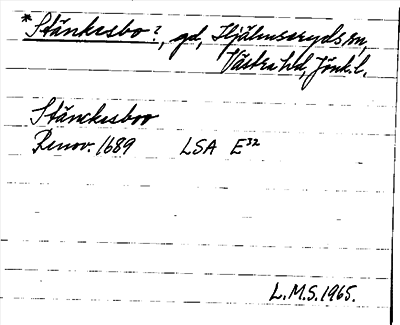 *Stänkesbo?, gd, Hjälmseryds sn,
Västra hd, Jönk.l.
Stänckesboo
Renov. 1689 LSA E32
L.M.S. 1965.